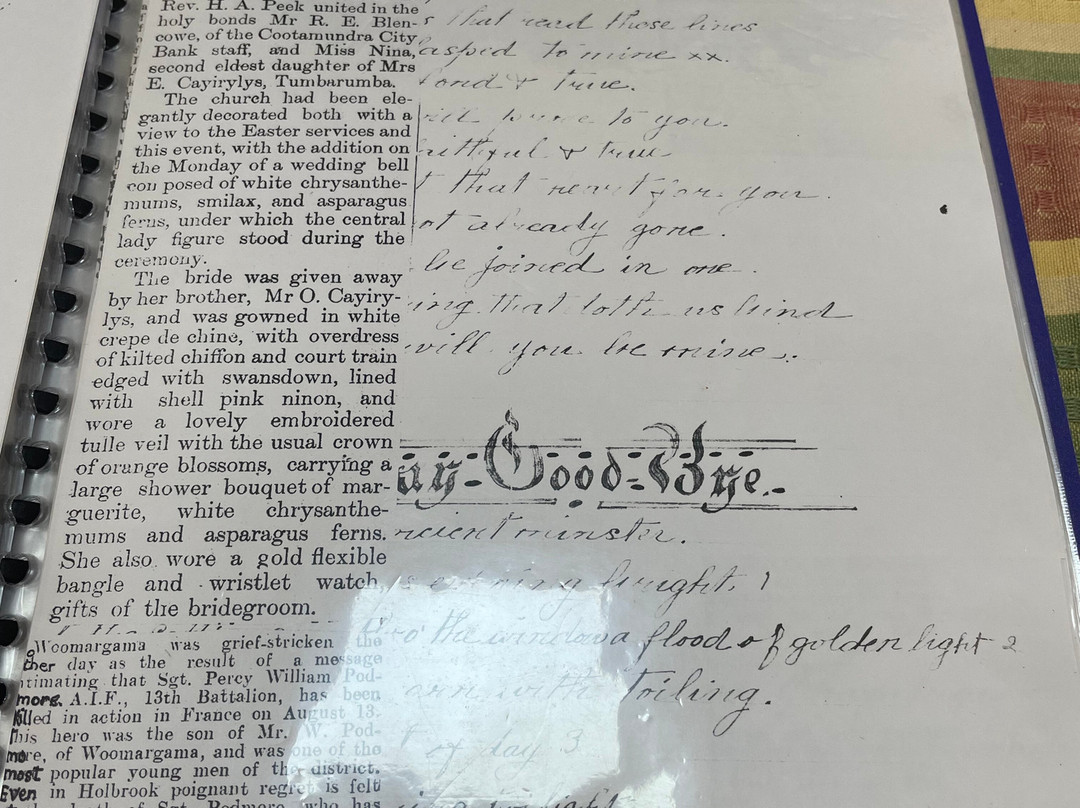 Rev. H. A. Peek united in the
holy bonds Mr R. E. Blen-
cowe, of the Cootamundra City
Bank staff, and Miss Nina,
second eldest daughter of Mrs
E. Cayirylys, Tumbarumba.
The church had been ele-
gantly decorated both with a
view to the Easter services and
this event, with the addition on
the Monday of a wedding bell
con posed of white chrysanthe-
mums, smilax, and asparagus
ferns, under which the central
lady figure stood during the
ceremony.
The bride was given away
by her brother, Mr O. Cayiry-
lys, and was gowned in white
crepe de chine, with overdress
of kilted chiffon and court train
edged with swansdown, lined
with shell pink ninon, and
wore a lovely embroidered
tulle veil with the usual crown
of orange blossoms, carrying a
large shower bouquet of mar-
guerite, white chrysanthe-
mums and asparagus ferns.
She also wore a gold flexible
bangle and wristlet watch,
gifts of the bridegroom.
Woomargama was grief-stricken the
other day as the result of a message
intimating that Sgt. Percy William Pod-
more, A.I.F., 13th Battalion, has been
killed in action in France on August 13.
This hero was the son of Mr. W. Pod-
more, of Woomargama, and was one of the
most popular young men of the district.
Even in Holbrook poignant regret is felt
Sgt. Podmore, who has
that read those lines
asped to mine xx.
ond & true.
to you.
aithful & true
that heart for you.
ot already gone.
be joined in one.
ing that both us bind
will you be mine.
Good-Bye.
ncient minster.
bright. 1
the window a flood of golden light 2
with triling.
of day 3